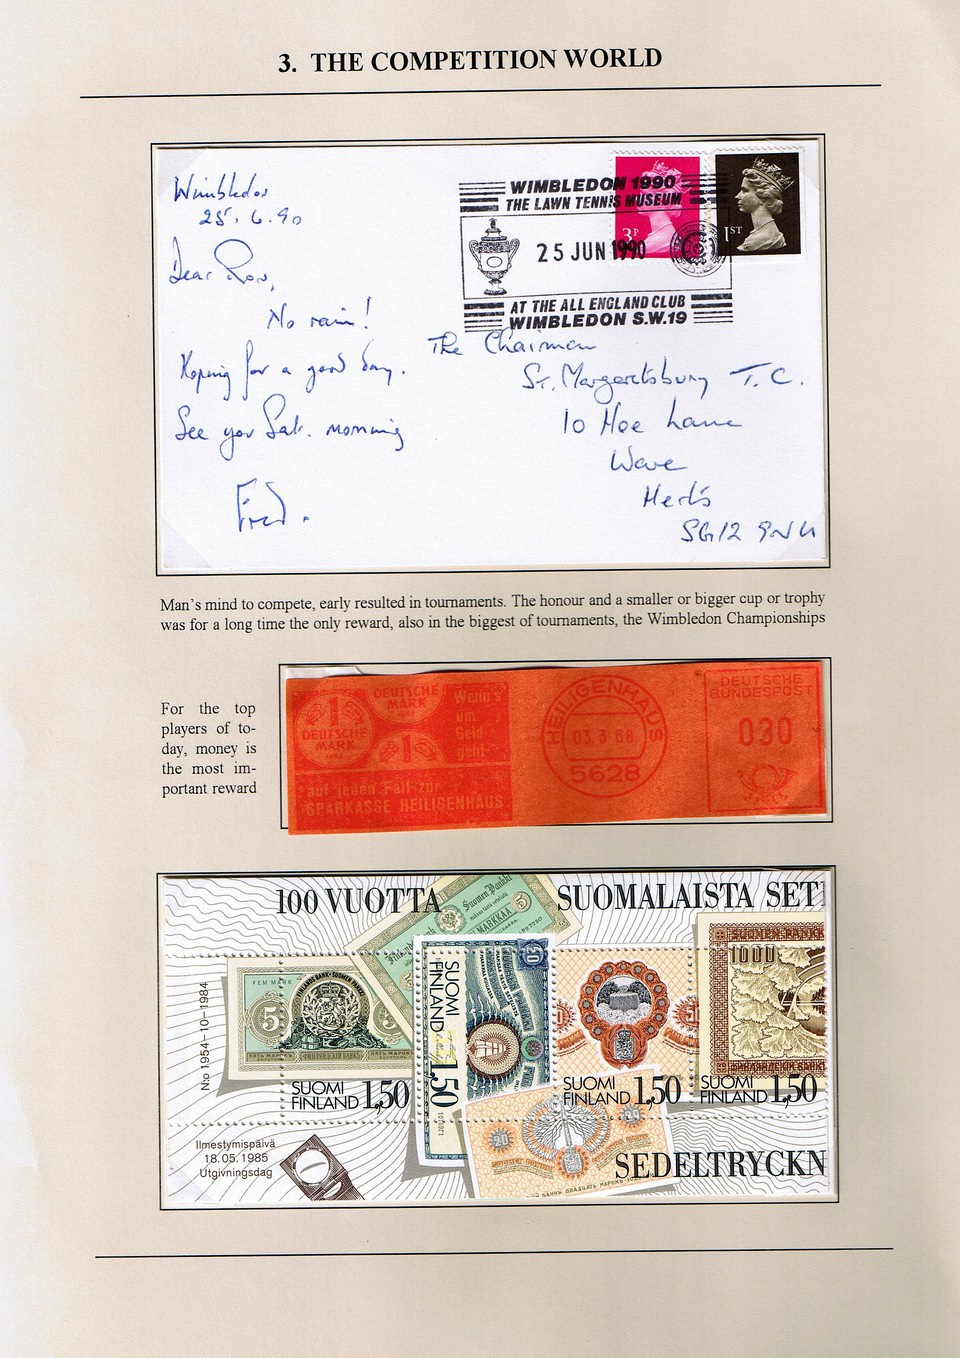 3. THE COMPETITION WORLD
Wimbledon
25.6.90
Dear Ron,
No rain!
Hoping for a good day.
See you Sat. morning
Fred.
WIMBLEDON 1990
THE LAWN TENNIS MUSEUM
25 JUN 1990
AT THE ALL ENGLAND CLUB
WIMBLEDON S.W.19
3P
1ST
The Chairman
St. Margaretsbury T.C.
10 Hoe Lane
Ware
Herts
SG12 9NU
Man's mind to compete, early resulted in tournaments. The honour and a smaller or bigger cup or trophy
was for a long time the only reward, also in the biggest of tournaments, the Wimbledon Championships
For the top
players of to-
day, money is
the most im-
portant reward
1
DEUTSCHE
MARK
DEUTSCHE
MARK
1
Wenn's
um
Geld
geht
auf jeden Fall zur
SPARKASSE HEILIGENHAUS
HEILIGENHAUS
03.3.68
5628
DEUTSCHE
BUNDESPOST
030
100 VUOTTA
SUOMALAISTA SET
Suomen Pankki
MARKKAA
N:o 1954-10-1984
FEM MARK
FINLANDS BANK SUOMEN PANKKI
5
5
ПЯТЬ МАРОКЪ
ФИНЛЯНДСКІЙ БАНКЪ
SUOMI
FINLAND 1,50
20
SUOMI
FINLAND
1,50
SUOMI
FINLAND 1,50
SUOMEN PANKK
1000
SUOMI
FINLAND 1,50
20
20
Ilmestymispäivä
18.05.1985
Utgivningsdag
SEDELTRYCKN